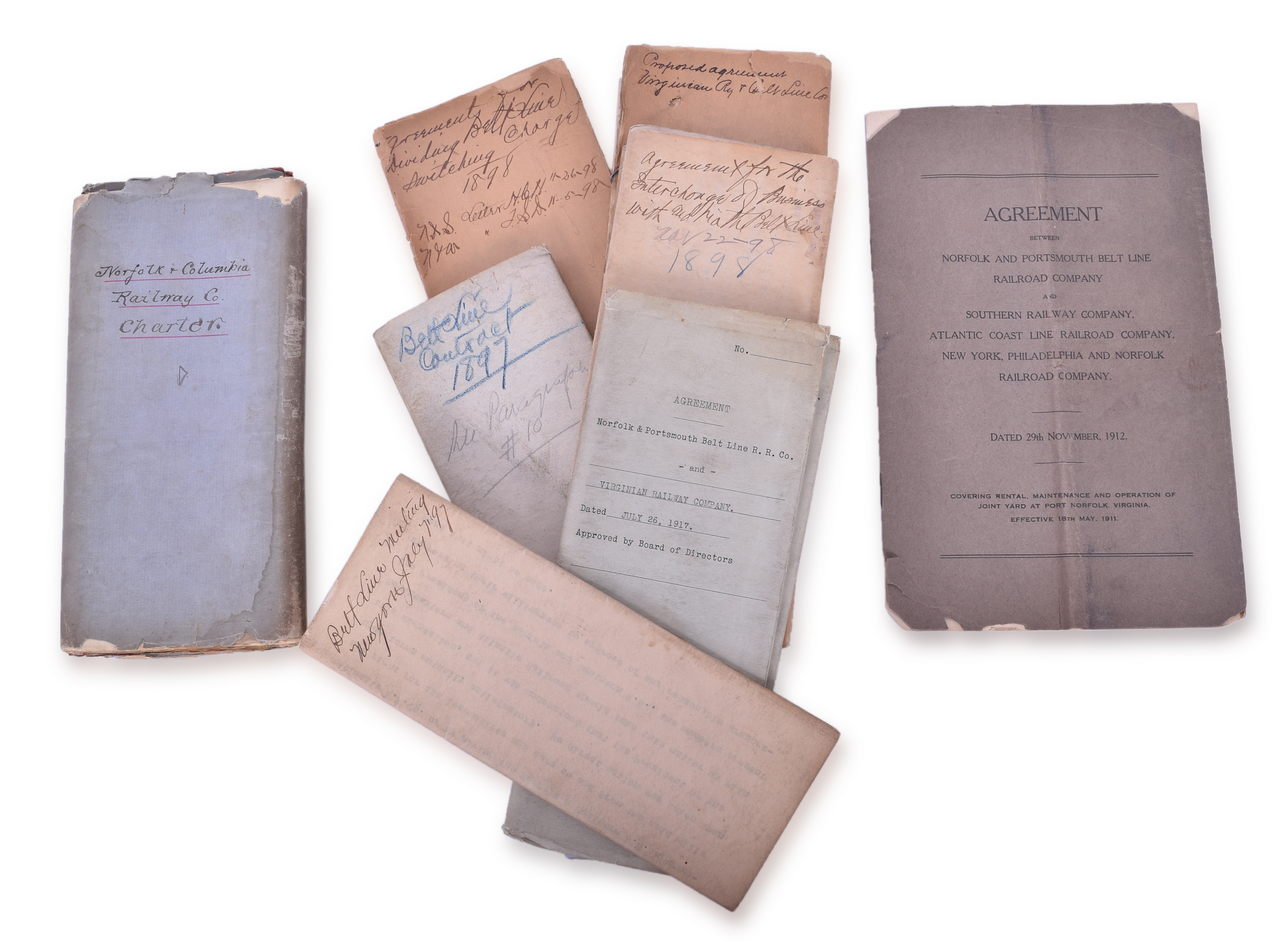 Norfolk & Columbia
Railway Co.
Charter.
Agreements for
Dividing Belt Line
Switching Charge
1898
Letter 11-26-98
" 11-5-98
Proposed agreement
Virginian Ry & Belt Line Co
Agreement for the
Interchange of Business
with Belt Line
Nov 22-98
1898
Belt Line
Contract
1897
See Paragraph
#18
No.
AGREEMENT
Norfolk & Portsmouth Belt Line R. R. Co.
- and -
VIRGINIAN RAILWAY COMPANY.
Dated JULY 26, 1917.
Approved by Board of Directors
Belt Line Meeting
New York July 7" 97
AGREEMENT
BETWEEN
NORFOLK AND PORTSMOUTH BELT LINE
RAILROAD COMPANY
AND
SOUTHERN RAILWAY COMPANY,
ATLANTIC COAST LINE RAILROAD COMPANY,
NEW YORK, PHILADELPHIA AND NORFOLK
RAILROAD COMPANY.
DATED 29th NOVEMBER, 1912.
COVERING RENTAL, MAINTENANCE AND OPERATION OF
JOINT YARD AT PORT NORFOLK, VIRGINIA.
EFFECTIVE 18TH MAY, 1911.